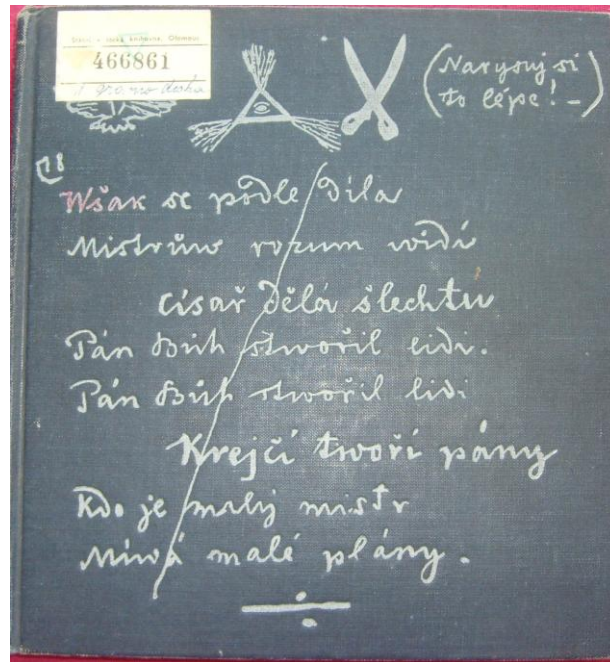 466861
(Narysuj si
to lépe! -)
[18
Wšak se podle díla
Mistrůw rozum widí
císař dělá šlechtu
Pán Bůh stwořil lidi.
Pán Bůh stwořil lidi
Krejčí twoří pány
Kdo je malý mistr
Mívá malé plány.